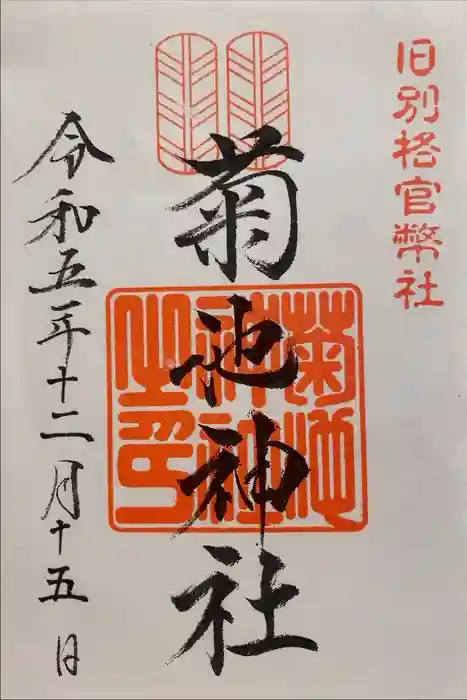 旧別格官幣社
菊池神社
菊池
神社
之印
令和五年十二月十五日